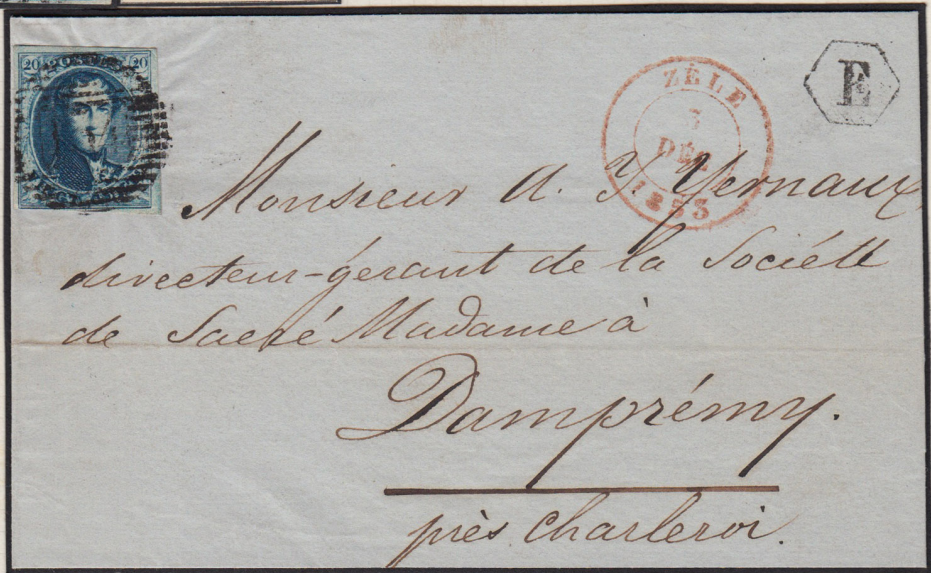 20 20
ZÈLE
DÉC
1853
E
Monsieur A. J. Yernaux,
directeur-gérant de la Société
de Sacré Madame à
Damprémy.
près Charleroi.